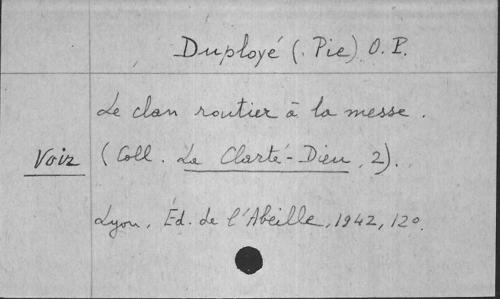 Duployé (. Pie) O. P.
Le clan routier à la messe.
Voir (Coll. La Clarté-Dieu, 2).
Lyon, Éd. de l'Abeille, 1942, 120.